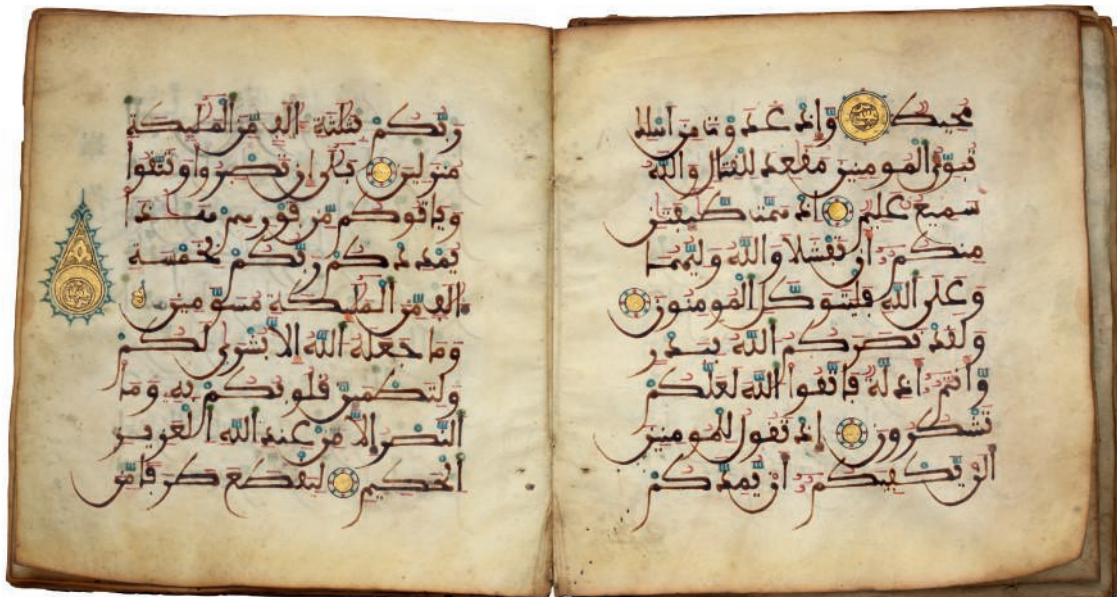 محيط وإذ غدوت من أهلك
تبوئ المومنين مقعد للقتال والله
سميع عليم إذ همت طايفتن
منكم أن تفشلا والله وليهما
وعلى الله فليتوكل المومنون
ولقد نصركم الله ببدر
وأنتم أذلة فاتقوا الله لعلكم
تشكرون إذ تقول للمومنين
ألن يكفيكم أن يمدكم
ربكم بثلثة ءالف من المليكة
منزلين بلى إن تصبروا وتتقوا
وياتوكم من فورهم هذا
يمددكم ربكم بخمسة
ءالف من المليكة مسومين
وما جعله الله إلا بشرى لكم
ولتطمين قلوبكم به وما
النصر إلا من عند الله العزيز
الحكيم ليقطع طرفا من